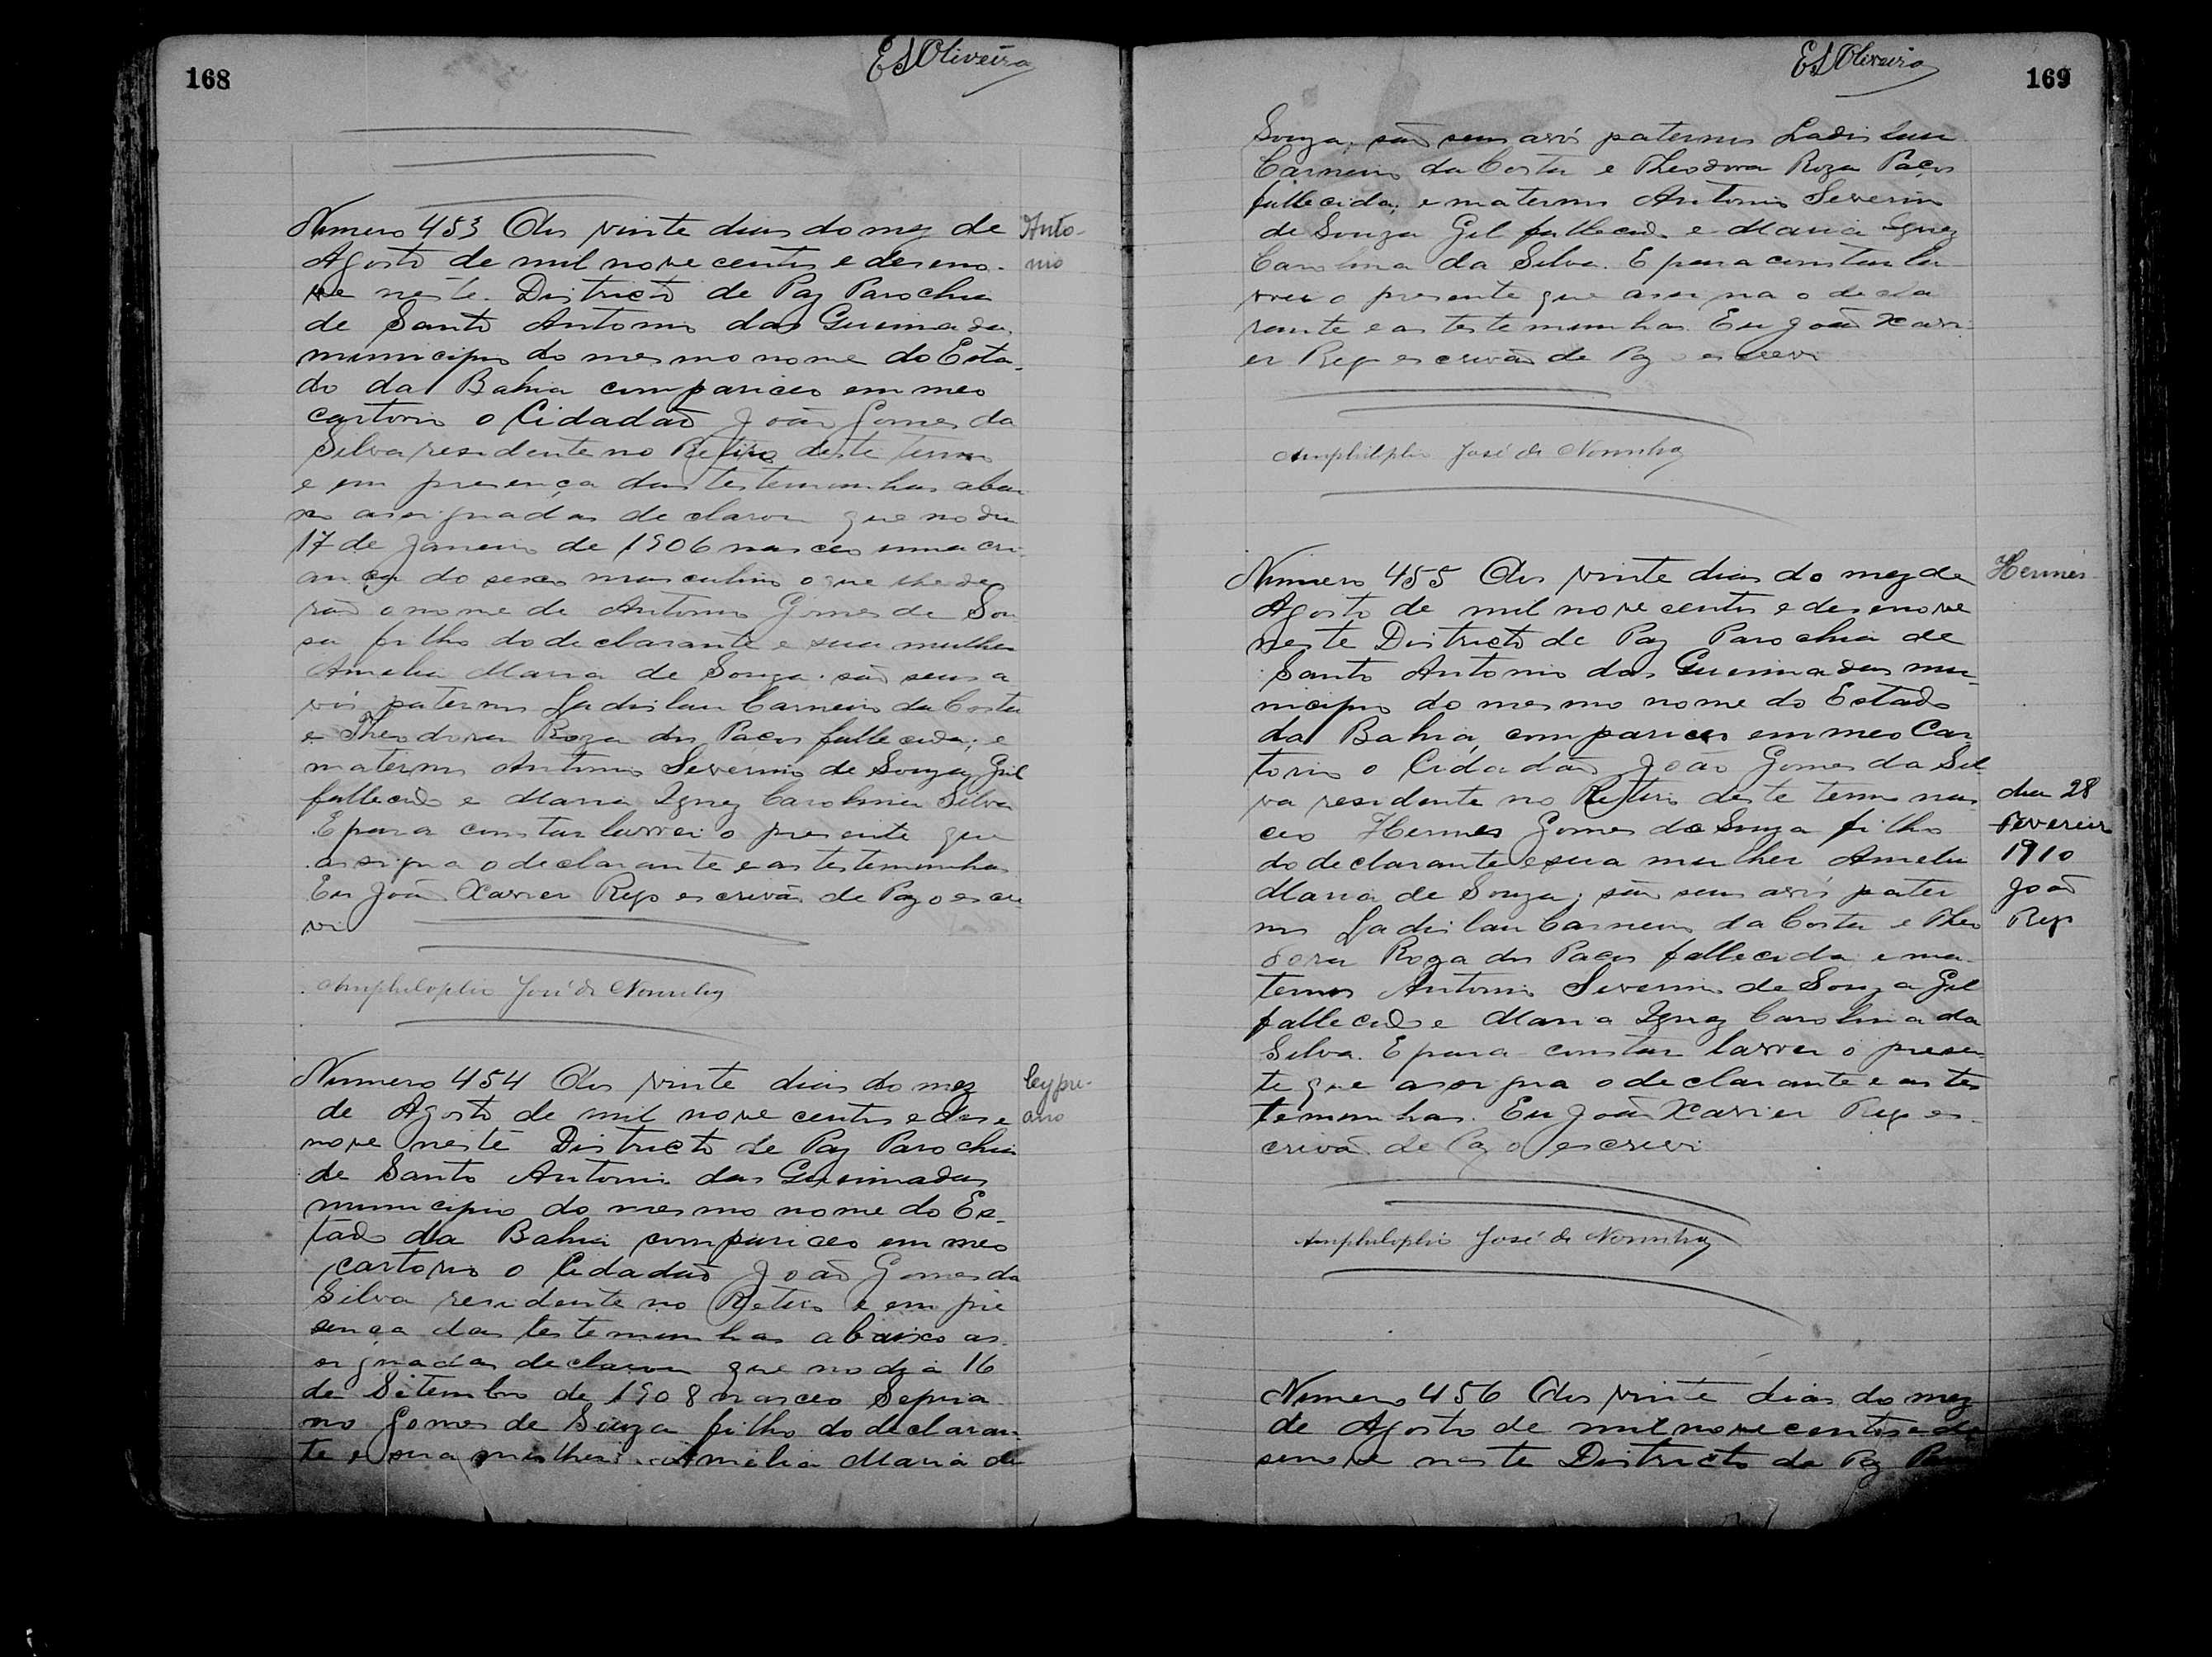 168
ESOliveira
Numero 453 Aos vinte dias do mez de
Anto-
nio
Agosto de mil nove centos e deseno-
ve neste Districto de Paz Parochia
de Santo Antonio das Queimadas
municipio do mesmo nome do Esta-
do da Bahia compariceo em meo
cartorio o Cidadão João Gomes da
Silva residente no Retiro deste termo
e em presença das testemunhas abai
xo assignadas declarou que no dia
17 de Janeiro de 1906 nasceo uma cri-
ança do sexo masculino o que lhe de
rão o nome de Antonio Gomes de Sou
sa filho do declarante e sua mulher
Amelia Maria de Souza. são seus a
vós paternos Ladislau Carneiro da Costa
e Theodora Roza dos Paços fallecida; e
maternos Antonio Severino de Souza Gil
fallecido e Maria Ignez Carolina Silva
E para constar lavrei o presente que
assigna o declarante e as testemunhas
Eu João Xavier Rego escrivão de Paz o escre
vi
Amphilophio José de Noronha
Numero 454 Aos vinte dias do mez
Cypri-
ano
de Agosto de mil nove centos e dese
nove neste Districto de Paz Parochia
de Santo Antonio das Queimadas
municipio do mesmo nome do Es-
tado da Bahia compariceo em meo
cartorio o Cidadão João Gomes da
Silva residente no Retiro e em pre
sença das testemunhas abaixo as
signadas declarou que no dia 16
de Setembro de 1908 nasceo Sepria-
no Gomes de Souza filho do declaran
te e sua mulher Amelia Maria de
ESOliveira
169
Souza, são seus avós paternos Ladislau
Carneiro da Costa e Theodora Roza Paços
fallecida; e maternos Antonio Severino
de Souza Gil fallecido e Maria Ignez
Carolina da Silva. E para constar la
vrei o presente que assigna o decla
rante e as testemunhas. Eu João Xavi-
er Rego escrivão de Paz o escrevi
Amphilophio José de Noronha
Numero 455 Aos vinte dias do mez de
Hermes
Agosto de mil nove centos e desenove
neste Districto de Paz Parochia de
Santo Antonio das Queimadas mu-
nicipio do mesmo nome do Estado
da Bahia, compariceo em meo Car
torio o Cidadão João Gomes da Sil
va residente no Retiro deste termo nas
ceo Hermes Gomes de Souza filho
do declarante e sua mulher Amelia
Maria de Souza; são seus avós pater
nos Ladislau Carneiro da Costa e Theo
dia 28
Fevereiro
1910
João
Rego
dora Roza dos Paços fallecida e ma-
ternos Antonio Severino de Souza Gil
fallecido e Maria Ignez Carolina da
Silva. E para constar lavrei o presen
te que assigna o declarante e as tes
temunhas. Eu João Xavier Rego es-
crivão de Paz o escrevi
Amphilophio José de Noronha
Numero 456 Aos vinte dias do mez
de Agosto de mil nove centos e de
senove neste Districto de Paz